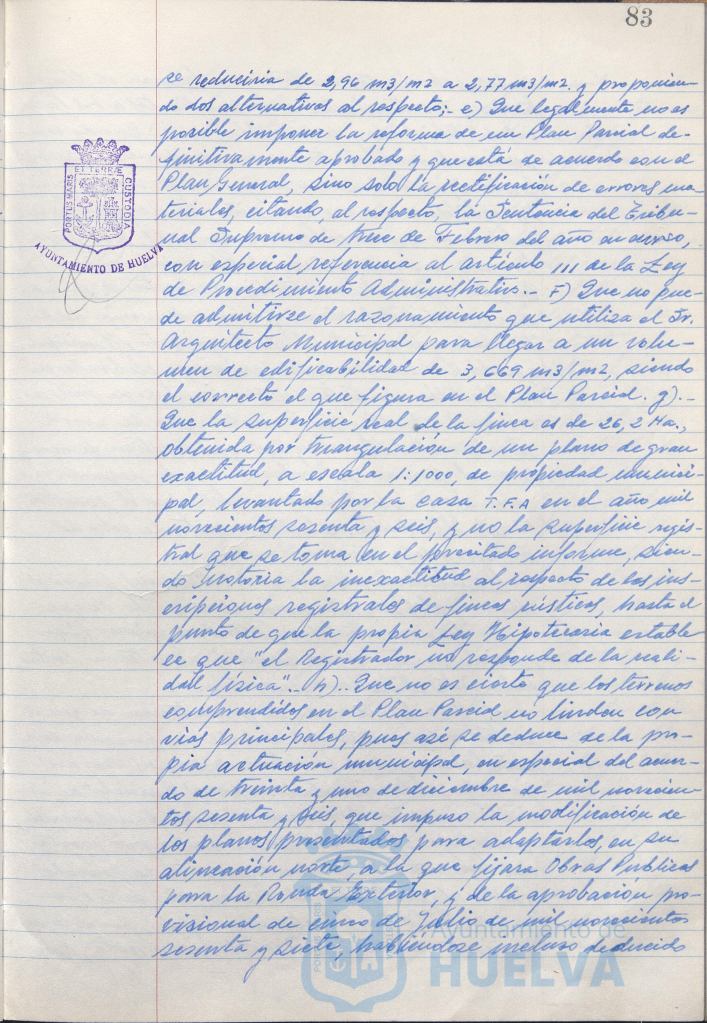 83
se reduciria de 2,96 m3/m2 a 2,77 m3/m2. y proponien-
do dos alternativas al respecto;- e) Que legalmente no es
posible imponer la reforma de un Plan Parcial de-
finitivamente aprobado y que está de acuerdo con el
Plan General, sino solo la rectificación de errores ma-
teriales, citando, al respecto, la Sentencia del Tribu-
nal Supremo de trece de Febrero del año en curso,
con especial referencia al artículo 111 de la Ley
de Procedimiento Administrativo.- F) Que no pue-
de admitirse el razonamiento que utiliza el Sr.
Arquitecto Municipal para llegar a un volu-
men de edificabilidad de 3,669 m3/m2, siendo
el correcto el que figura en el Plan Parcial. g).-
Que la superficie real de la finca es de 26,2 Ha.,
obtenida por triangulación de un plano de gran
exactitud, a escala 1:1000, de propiedad munici-
pal, levantado por la casa T.F.A en el año mil
novecientos sesenta y seis, y no la superficie regis-
tral que se toma en el precitado informe, sien-
do notoria la inexactitud al respecto de las ins-
cripciones registrales de fincas rústicas, hasta el
punto de que la propia Ley Hipotecaria estable
ce que "el Registrador no responde de la reali-
dad física".- h).. Que no es cierto que los terrenos
comprendidos en el Plan Parcial no linden con
vías principales, pues así se deduce de la pro-
pia actuación municipal, en especial del acuer-
do de treinta y uno de diciembre de mil novecien-
tos sesenta y seis, que impuso la modificación de
los planos presentados para adaptarlos, en su
alineación norte, a la que fijara Obras Públicas
para la Ronda Exterior, y de la aprobación pro-
visional de cinco de Julio de mil novecientos
sesenta y siete, habiendose incluso deducido
PORTUS MARIS ET TERRÆ CUSTODIA
AYUNTAMIENTO DE HUELVA
Ayuntamiento de
HUELVA